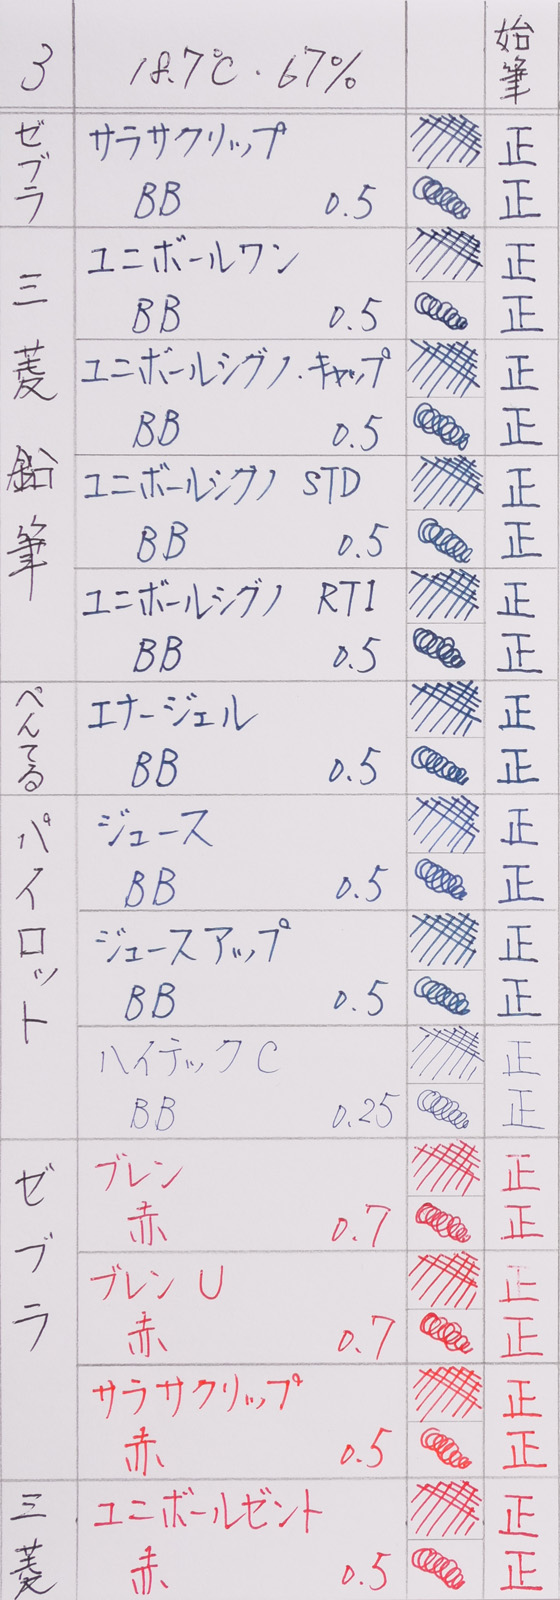 3 18.7℃・67% 始筆
ゼブラ サラサクリップ 正
BB 0.5 正
三菱鉛筆 ユニボールワン 正
BB 0.5 正
ユニボールシグノ・キャップ 正
BB 0.5 正
ユニボールシグノ STD 正
BB 0.5 正
ユニボールシグノ RT1 正
BB 0.5 正
ぺんてる エナージェル 正
BB 0.5 正
パイロット ジュース 正
BB 0.5 正
ジュースアップ 正
BB 0.5 正
ハイテックC 正
BB 0.25 正
ゼブラ ブレン 正
赤 0.7 正
ブレンU 正
赤 0.7 正
サラサクリップ 正
赤 0.5 正
三菱 ユニボールゼント 正
赤 0.5 正